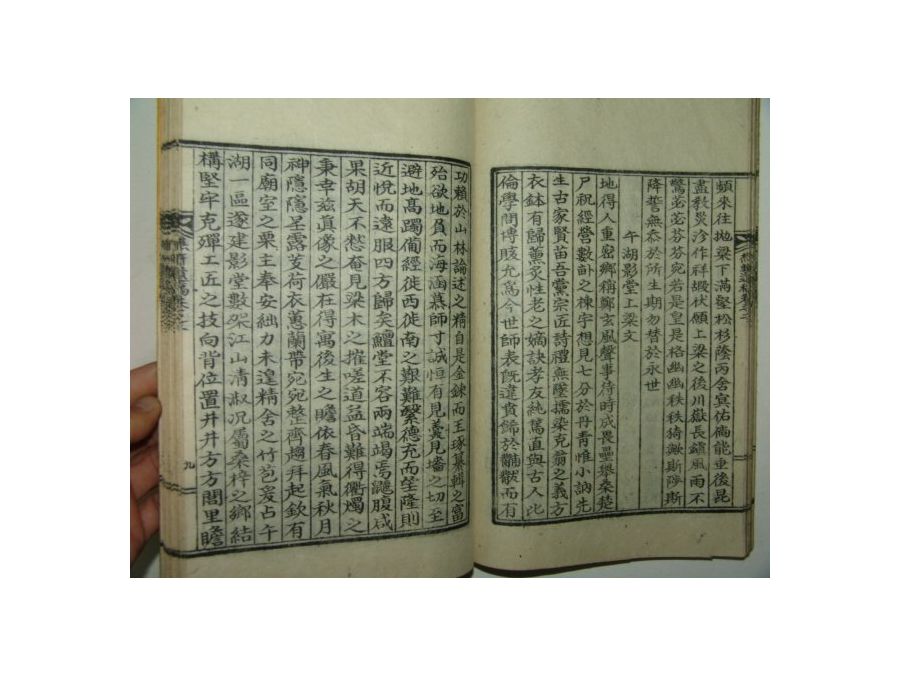 頻來往拋梁下滿壑松杉蔭丙舍冥佑偏能重後昆
盡教災沴作祥嘏伏願上梁之後川嶽長鏞風雨不
驚苾苾芬芬宛若是皇是格幽幽秩秩猗歟斯陟斯
降誓無忝於所生期勿替於永世
午湖影堂上梁文
地得人重密鄉稱鄭玄風聲事待時成畏壘擧桑楚
尸祝經營數卦之棟宇想見七分於丹青惟小訥先
生古家賢苗吾黨宗匠詩禮無墜擩染克翁之義方
衣鉢有歸薰炙性老之嫡訣孝友純篤直與古人比
倫學問博賅允爲今世師表旣違賁歸於黼黻而有
功賴於山林論述之精自是金鍊而玉琢纂輯之富
殆欲地負而海涵慕師寸誠恒有見羹見墻之切至
避地高躅備經徙西徙南之艱難繄德充而望隆則
近悅而遠服四方歸矣鱣堂不容兩端竭焉飀腹咸
果胡天不憗奄見梁木之摧嗟道益昏難得衢燭之
秉幸玆眞像之儼在得寓後生之瞻依春風氣秋月
神隱隱呈露芰荷衣蕙蘭帶宛宛整齊趨拜起欽有
同廟室之栗主奉安絀力未遑精舍之竹苞爰占午
湖一區遂建影堂數架江山清淑況屬桑梓之鄉結
構堅牢克殫工匠之技向背位置井井方方閭里瞻
九